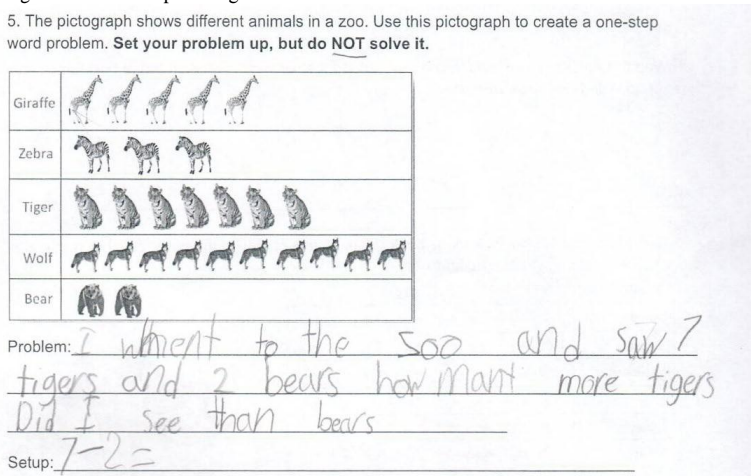 5. The pictograph shows different animals in a zoo. Use this pictograph to create a one-step
word problem. Set your problem up, but do NOT solve it.
Giraffe
Zebra
Tiger
Wolf
Bear
Problem: I whent to the soo and saw 7
tigers and 2 bears how mant more tigers
Did I see than bears
Setup: 7-2=